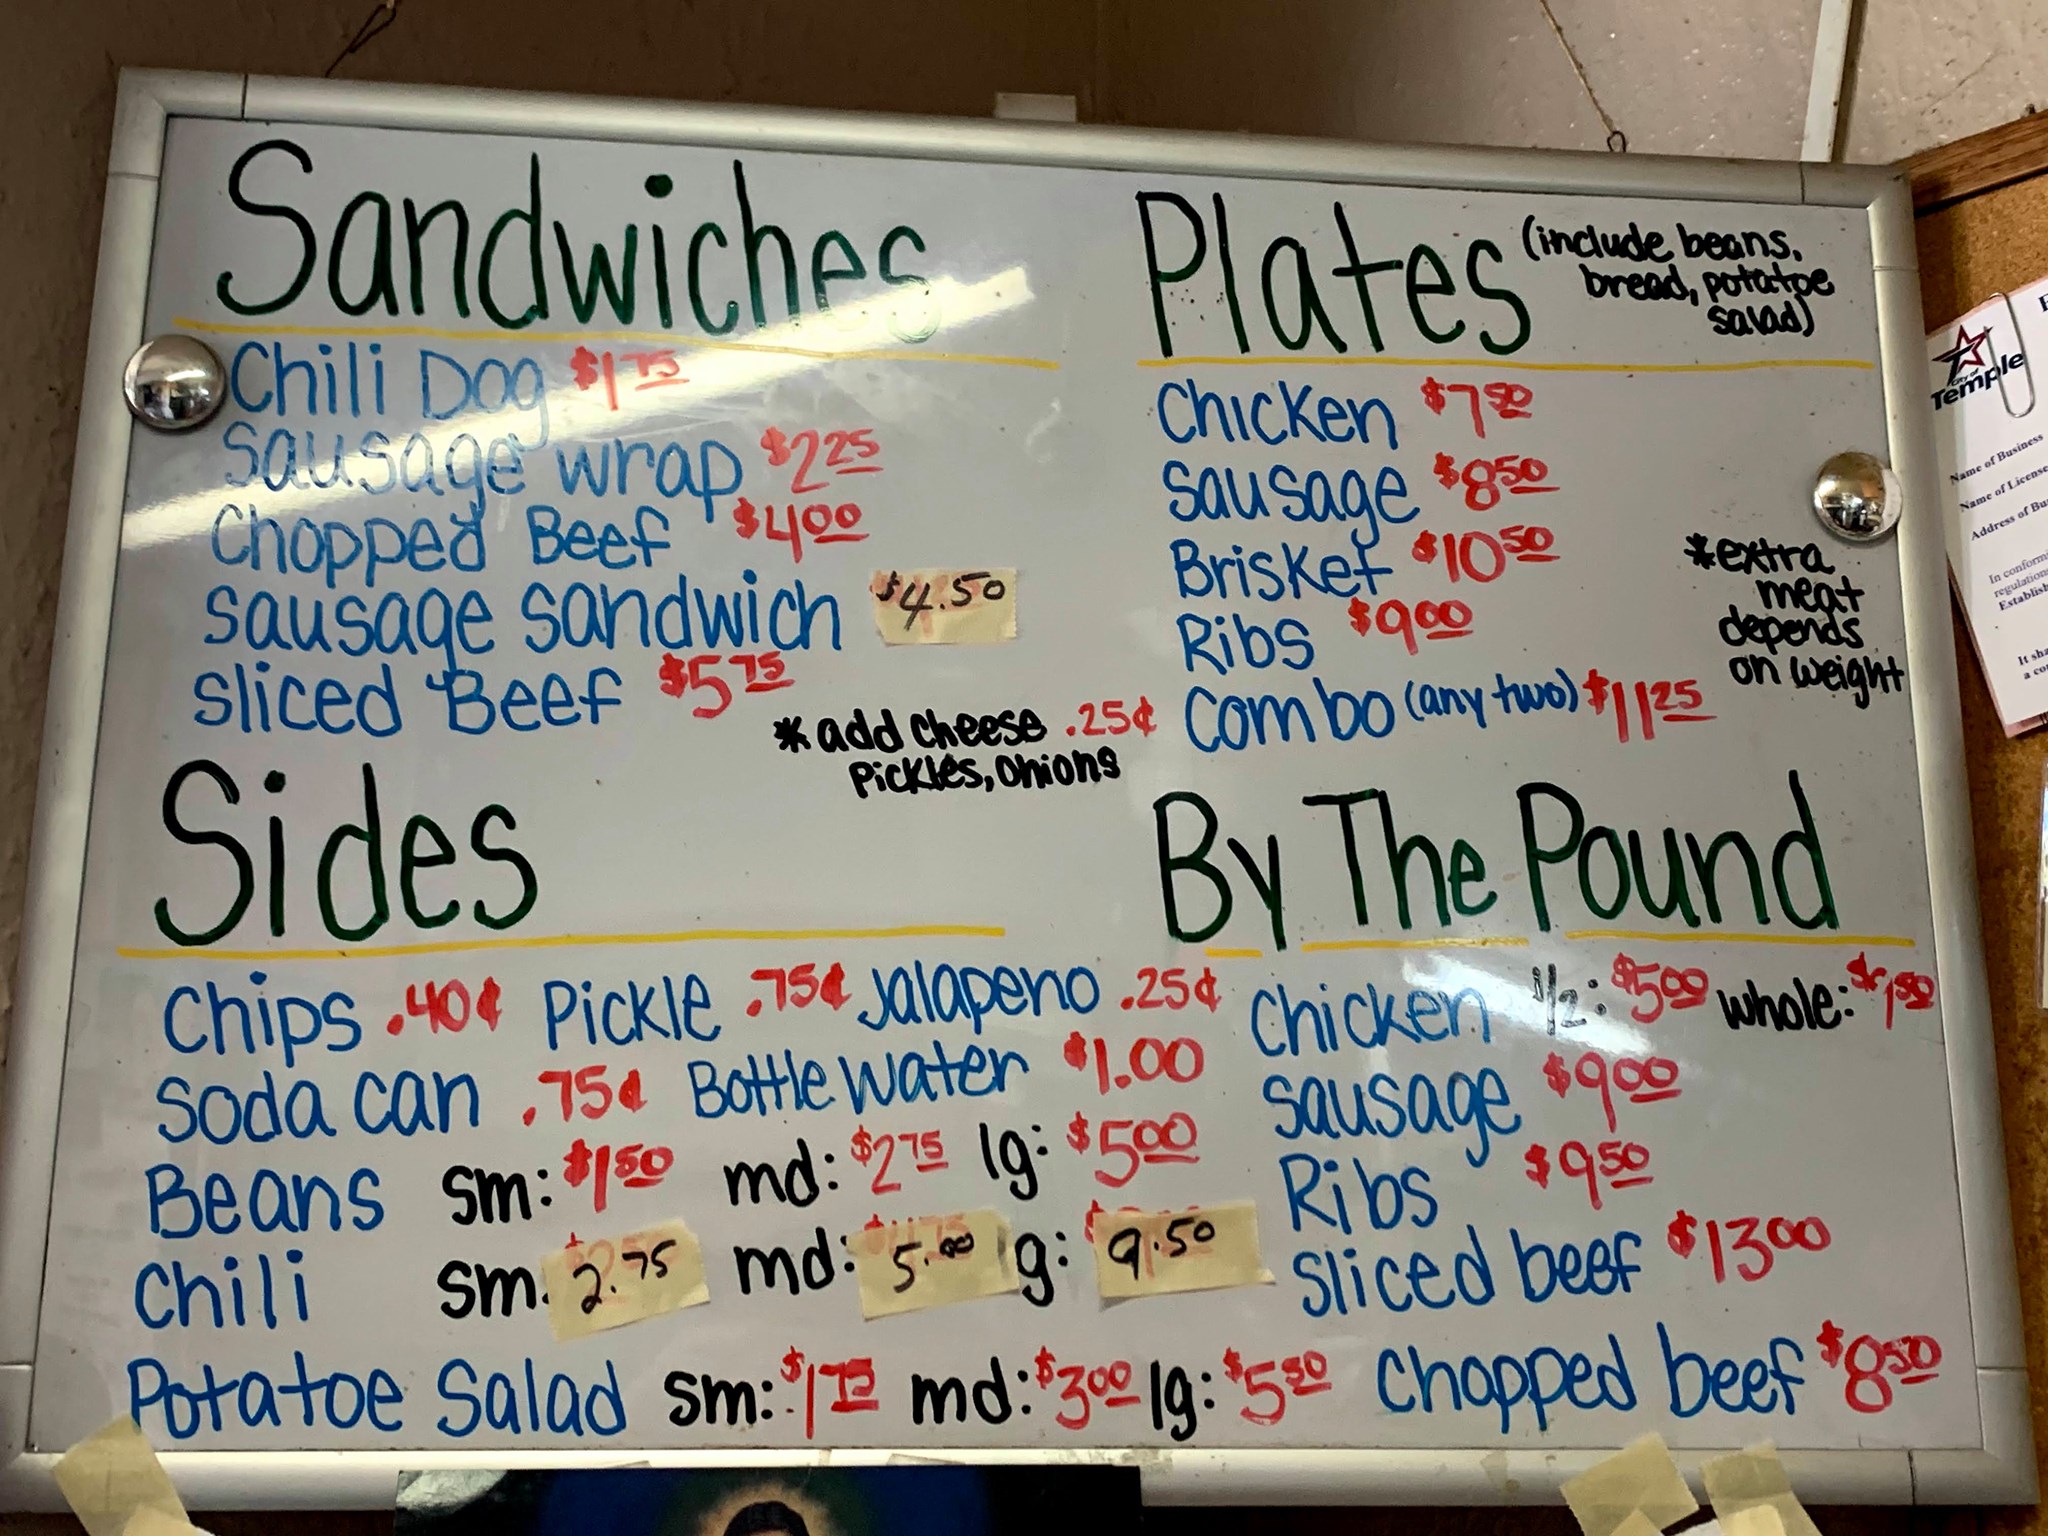 Sandwiches
Chili Dog $1.75
sausage wrap $2.25
Chopped Beef $4.00
sausage sandwich $4.50
sliced Beef $5.75
*add cheese .25¢
Pickles, onions
Plates (include beans,
bread, potatoe
salad)
Chicken $7.50
sausage $8.50
Brisket $10.50
Ribs $9.00
Combo (any two) $11.25
*extra
meat
depends
on weight
Sides
Chips .40¢ Pickle .75¢ Jalapeno .25¢
soda can .75¢ Bottle water $1.00
Beans sm: $1.50 md: $2.75 lg: $5.00
Chili sm: 2.75 md: 5.00 lg: 9.50
Potatoe Salad sm: $1.75 md: $3.00 lg: $5.50
By The Pound
Chicken 1/2: $5.00 whole:
sausage $9.00
Ribs $9.50
sliced beef $13.00
Chopped beef $8.50
City of
Temple
Name of Business
Name of License
Address of
In
Establish
It